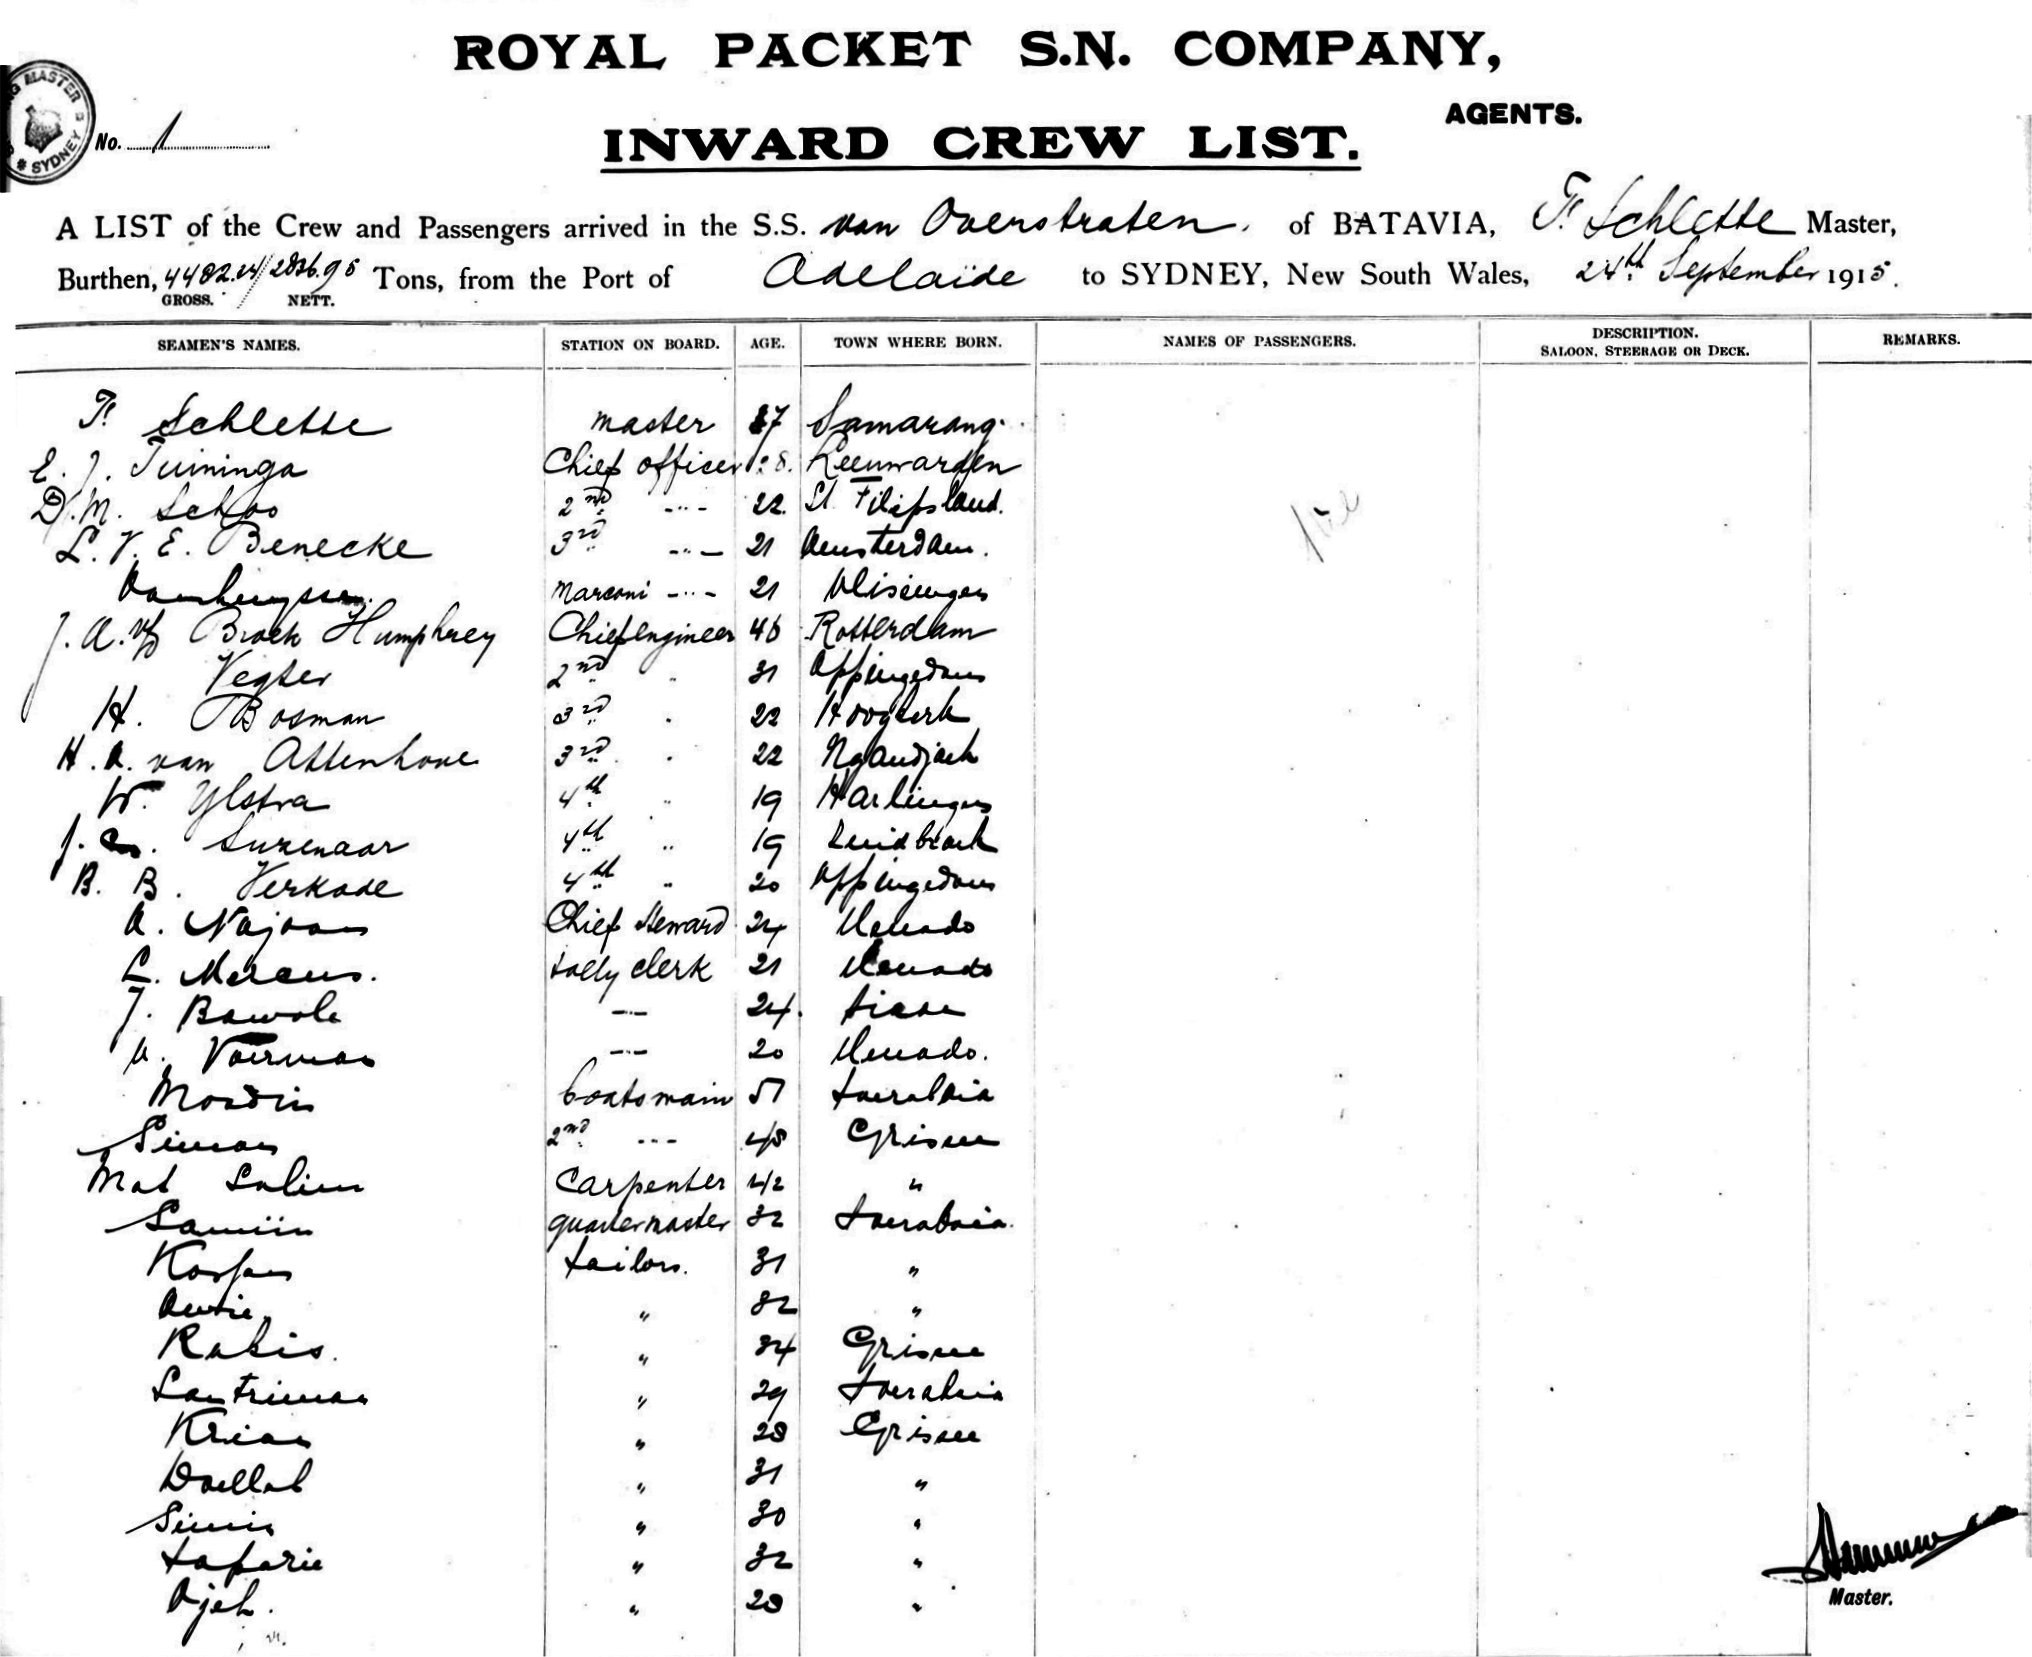 ROYAL PACKET S.N. COMPANY,
AGENTS.
MASTER SYDNEY
No. 1
INWARD CREW LIST.
A LIST of the Crew and Passengers arrived in the S.S. van Overstraten. of BATAVIA, F. Schlette Master,
Burthen, Tons, from the Port of Adelaide to SYDNEY, New South Wales, 24th September 1915.
GROSS. NETT.
SEAMEN'S NAMES. STATION ON BOARD. AGE. TOWN WHERE BORN. NAMES OF PASSENGERS. DESCRIPTION. SALOON, STEERAGE OR DECK. REMARKS.
Schlette master Samarang.
E. J. Tuininga Chief officer 28. Leeuwarden
D. M. Schoo 2nd -"- 22. St. Filipsland.
L. V. E. Benecke 3rd -"- 21 Amsterdam.
Marconi -"- 21 Vlissingen
J. A. Broek Humphrey Chief engineer 46 Rotterdam
Vegter 2nd " 31 Appingedam
H. Bosman 3rd " 22 Hoogkerk
H. A. van Attenhove 3rd " 22 Ngandjoek
W. Ylstra 4th " 19 Harlingen
J. Suzenaar 4th " 19 Zuidbroek
B. B. Verkade 4th " 20 Appingedam
A. Najoan Chief Steward 24 Menado
L. Marcus. tally clerk 21 Menado
J. Bawole -"- 24. Siaoe
A. Voerman -"- 20 Menado.
Mordin boatsmain 51 Soerabaia
Siman 2nd -"- 48 Grisee
Mat Salim Carpenter 42 "
Samiin quartermaster 32 Soerabaia.
sailors. 31 "
" 32 "
" 34 Grisee
Santriman " 29 Soerabaia
Krian " 28 Grisee
Doellah " 31 "
" 30 "
" 32 "
" 28 "
Master.